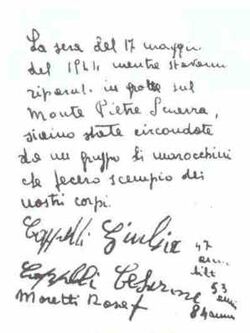 La sera del 17 maggio
del 1944 mentre stavamo
in grotte sul
Monte Pietre
siamo state circondate
da un gruppo di marocchini
che fecero scempio dei
nostri corpi.
Giulia 47
anni
Cesarina 53
anni
Moretti Rosa 84 anni